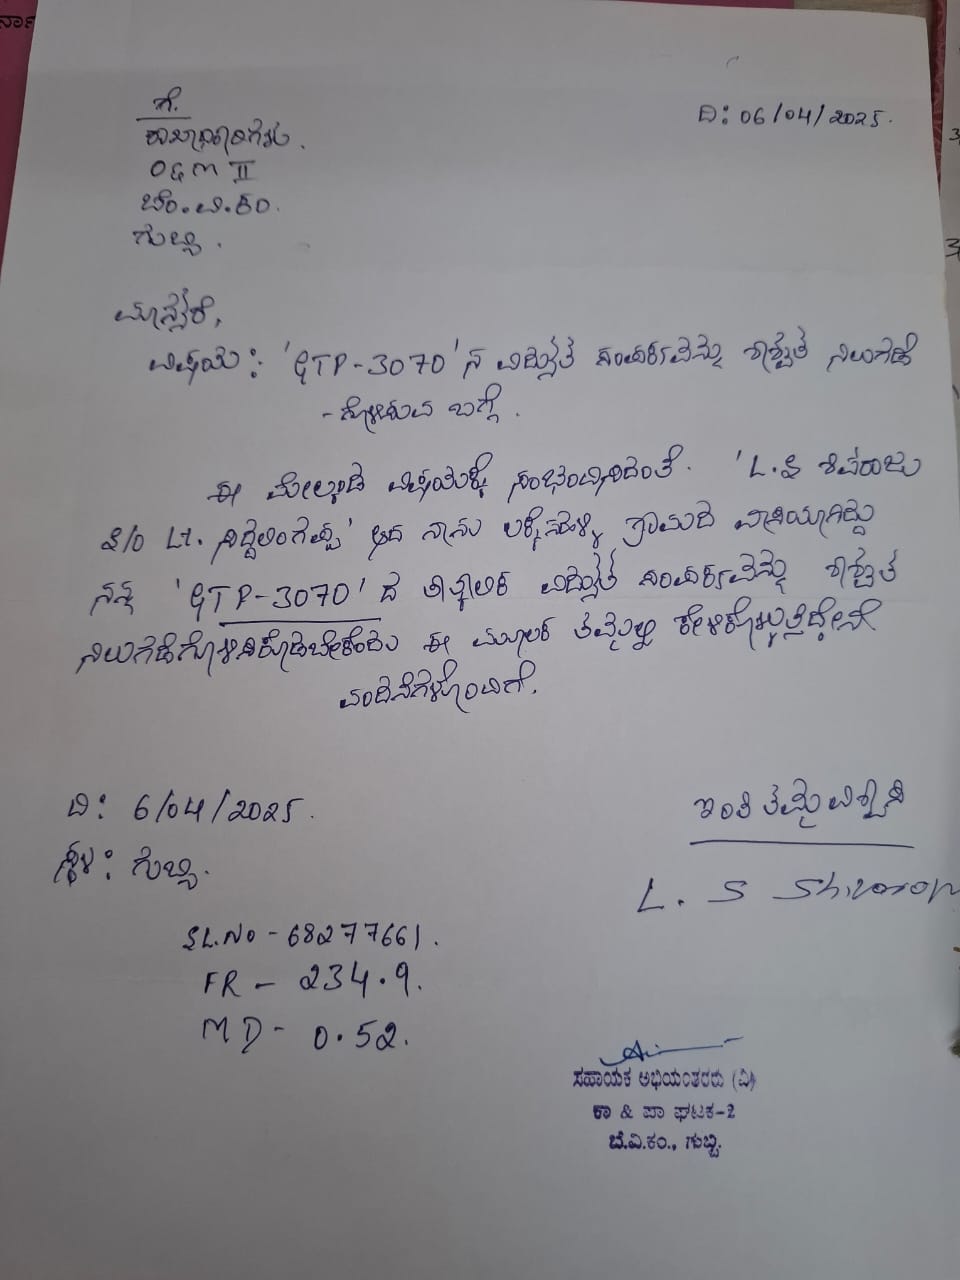 ಗೆ.
ದಿ: 06/04/2025.
ಶಾಖಾಧಿಕಾರಿಗಳು.
O&M II
ಬೆಂ.ವಿ.ಕಂ.
ಗುಬ್ಬಿ.
ಮಾನ್ಯರೆ,
ವಿಷಯ: 'GTP-3070'ನ ವಿದ್ಯುತ್ ಸಂಪರ್ಕವನ್ನು ಶಾಶ್ವತ ನಿಲುಗಡೆ
-ಗೊಳಿಸುವ ಬಗ್ಗೆ.
ಈ ಮೇಲ್ಕಂಡ ವಿಷಯಕ್ಕೆ ಸಂಬಂಧಿಸಿದಂತೆ. 'L.S ಶಿವರಾಜು
S/o Lt. ಸಿದ್ದಲಿಂಗಪ್ಪ' ಆದ ನಾನು ಗ್ರಾಮದ ವಾಸಿಯಾಗಿದ್ದು
ನನ್ನ 'GTP-3070' ದ ವಿದ್ಯುತ್ ಸಂಪರ್ಕವನ್ನು ಶಾಶ್ವತ
ನಿಲುಗಡೆಗೊಳಿಸಿಕೊಡಬೇಕೆಂದು ಈ ಮೂಲಕ ತಮ್ಮಲ್ಲಿ ಕೇಳಿಕೊಳ್ಳುತ್ತಿದ್ದೇನೆ
ವಂದನೆಗಳೊಂದಿಗೆ.
ದಿ: 6/04/2025.
ಇಂತಿ ತಮ್ಮ ವಿಶ್ವಾಸಿ
ಸ್ಥಳ: ಗುಬ್ಬಿ.
L. S
SL.No - 68277661.
FR - 234.9.
MD - 0.52.
ಸಹಾಯಕ ಅಭಿಯಂತರರು (ವಿ)
ಕಾ & ಪಾ ಘಟಕ-2
ಬೆ.ವಿ.ಕಂ., ಗುಬ್ಬಿ.